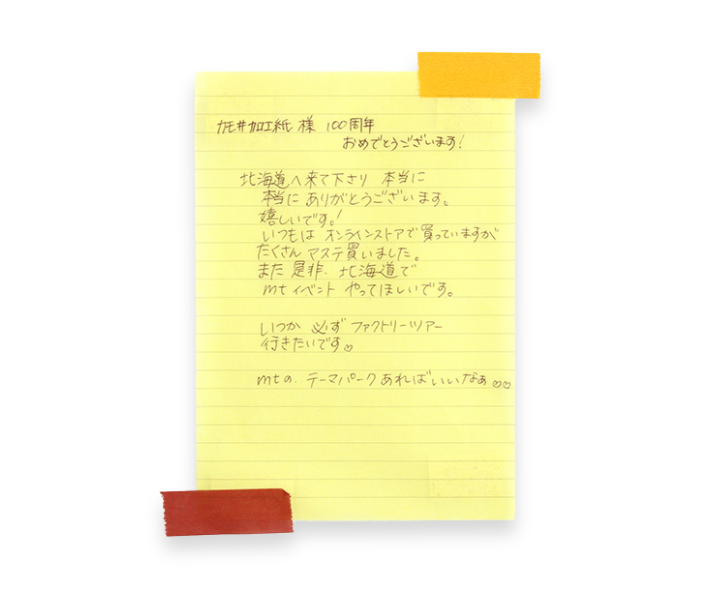 カモ井加工紙 様 100周年
おめでとうございます!
北海道へ来て下さり 本当に
本当に ありがとうございます。
嬉しいです。!
いつもは オンラインストアで買っていますが
たくさん マステ買いました。
また 是非、北海道で
mt イベント やってほしいです。
いつか 必ず ファクトリーツアー
行きたいです♡
mtの、テーマパークあればいいなぁ♡♡